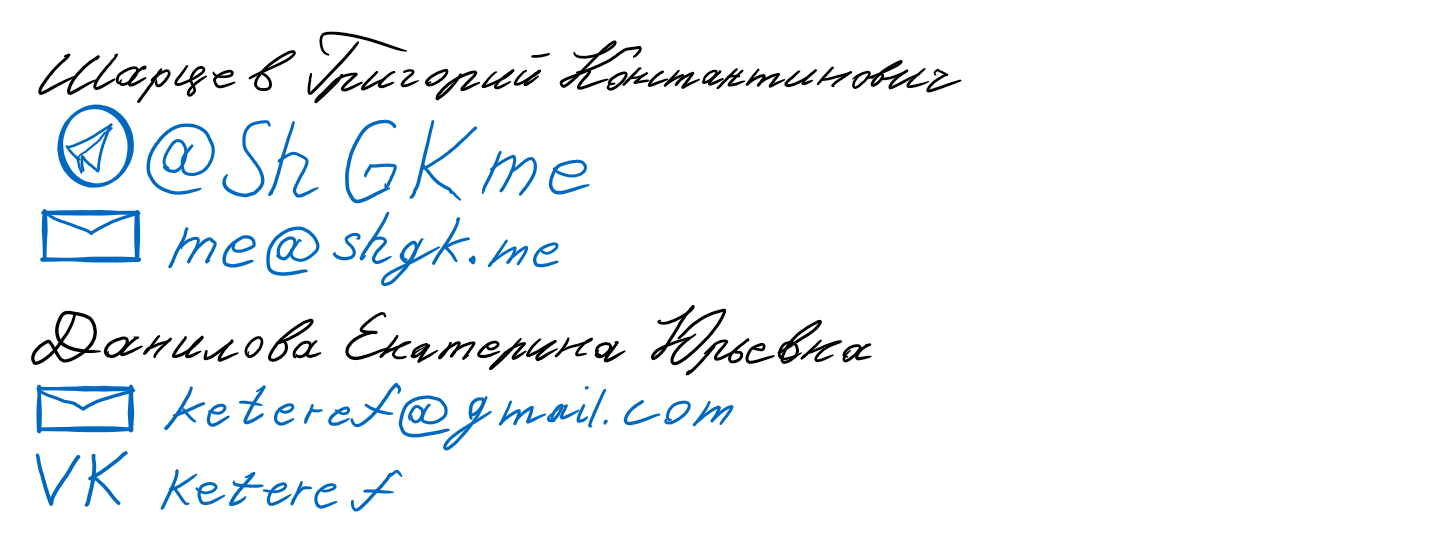 Шарцев Григорий Константинович
@ShGKme
me@shgk.me
Данилова Екатерина Юрьевна
keteref@gmail.com
VK keteref